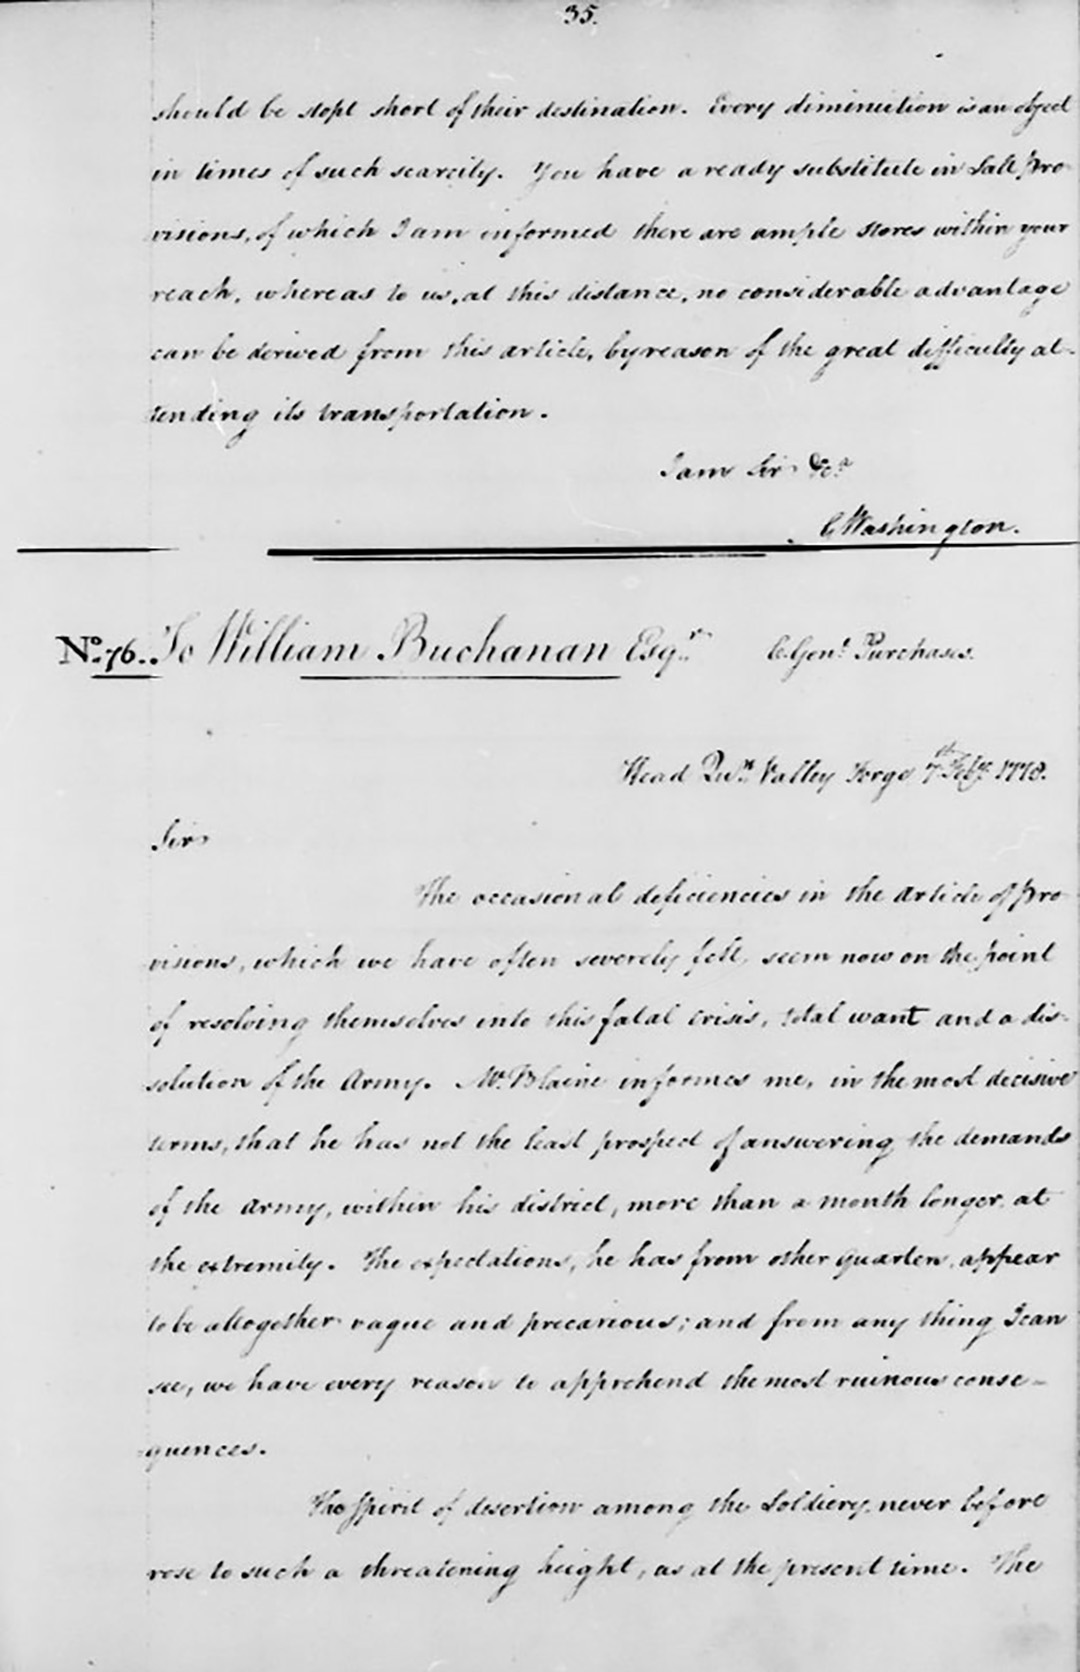 35.
should be stopt short of their destination. Every diminution is an object
in times of such scarcity. You have a ready substitute in Salt pro
visions, of which I am informed there are ample stores within your
reach, whereas to us, at this distance, no considerable advantage
can be derived from this article, by reason of the great difficulty at-
tending its transportation.
I am Sir &ca
G Washington.
No. 76. To William Buchanan Esqr. C. Genl. Purchases.
Head Qurs. Valley Forge 7th Feby. 1778.
Sir
The occasional deficiencies in the article of pro
visions, which we have often severely felt, seem now on the point
of resolving themselves into this fatal crisis, total want and a dis-
solution of the Army. Mr. Blaine informes me, in the most decisive
terms, that he has not the least prospect of answering the demands
of the army, within his district, more than a month longer, at
the extremity. The expectations, he has from other quarters, appear
to be altogether vague and precarious; and from any thing I can
see, we have every reason to apprehend the most ruinous conse-
quences.
The spirit of desertion among the Soldiery, never before
rose to such a threatening height, as at the present time. The